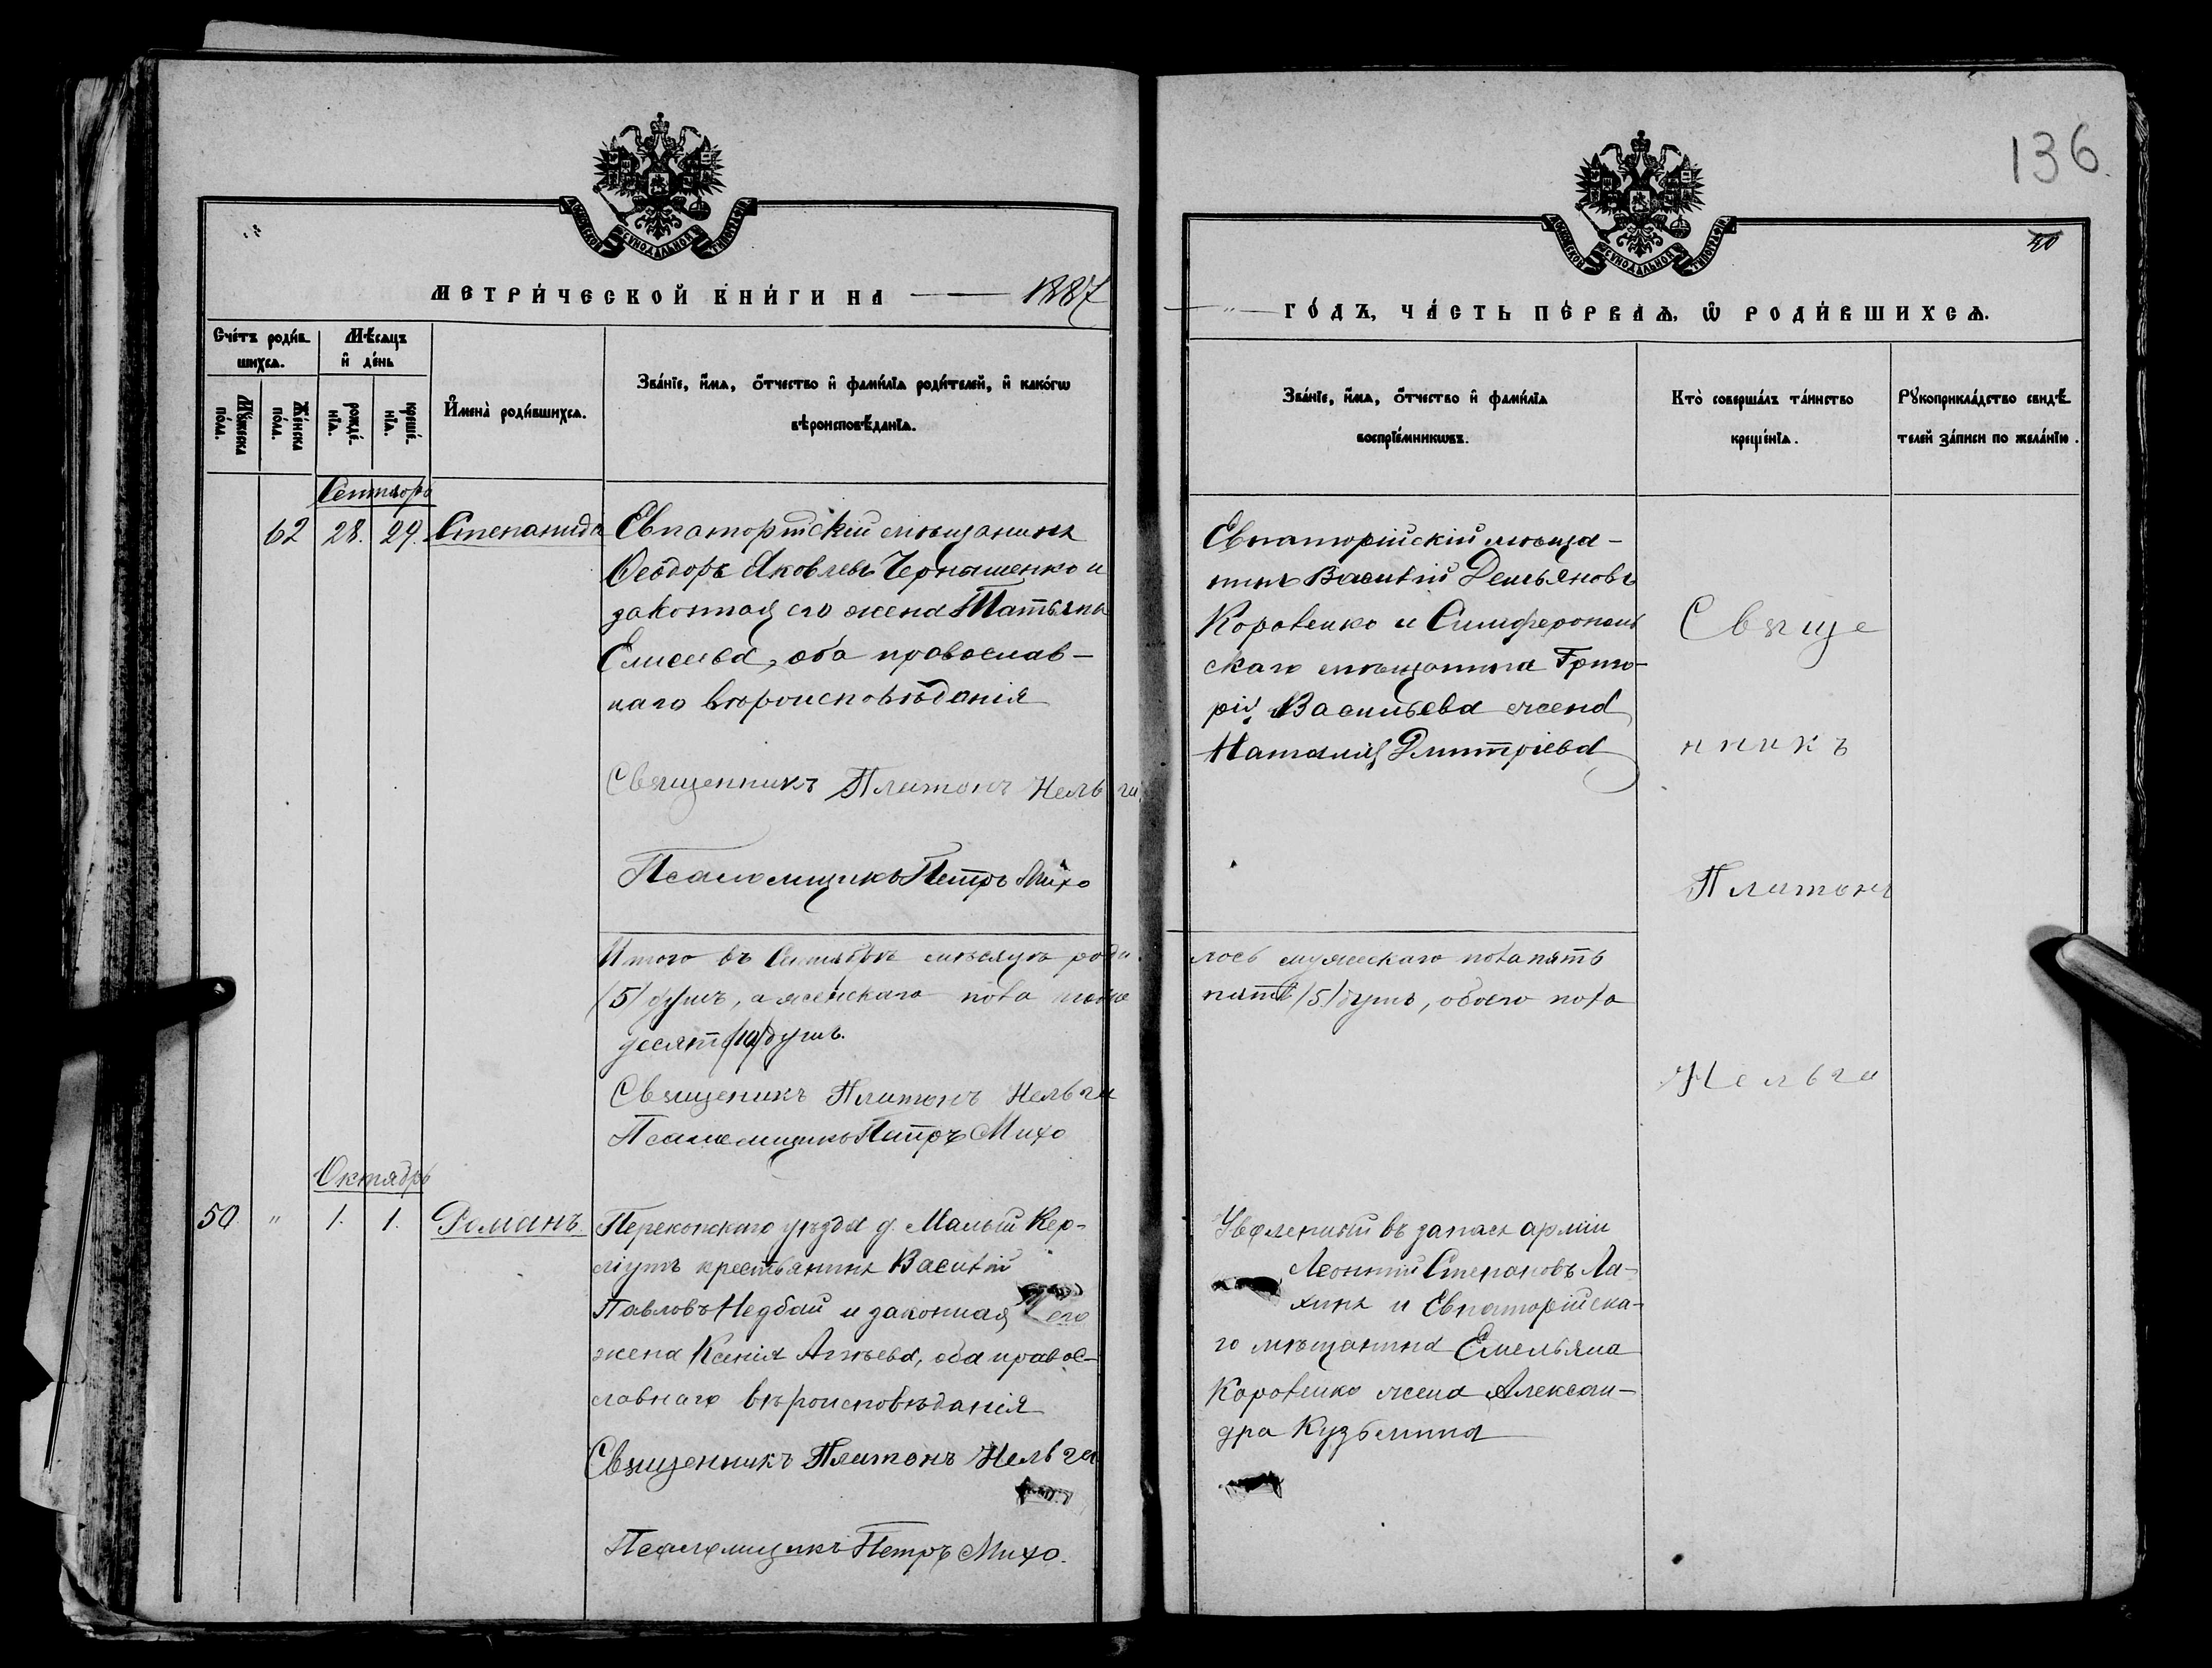 136.
40
МЕТРИ́ЧЕСКОЙ КНИ́ГИ НА 1887
ГО́ДЪ, ЧА́СТЬ ПЕ́РВАѦ, Ѡ҆ РОДИ́ВШИХСѦ.
Сче́тъ роди́в-
шихсѧ.
Мѣ́сѧцъ
и҆ де́нь
Мꙋ́жеска
по́ла.
Же́нска
по́ла.
рожде́-
нїѧ.
креще́-
нїѧ.
И҆мена̀ роди́вшихсѧ.
Зва́нїе, и҆́мѧ, ѻ҆́тчество и҆ фами́лїѧ роди́телей, и҆ како́гѡ
вѣроисповѣ́данїѧ.
Зва́нїе, и҆́мѧ, ѻ҆́тчество и҆ фами́лїѧ
воспрїе́мникѡвъ.
Кто̀ соверша́лъ та́инство
креще́нїѧ.
Рꙋкоприкла́дство свидѣ́-
телей за́писи по жела́нїю.
Сентябрь
62 28. 29. Степанида
Евпаторійскій мѣщанинъ
Ѳеодоръ Яковлевъ Чернышенко и
законная его жена Татьяна
Елисеева, оба православ-
наго вѣроисповѣданія
Священникъ Платонъ Нельга
Псаломщикъ Петръ Михо
Евпаторійскій мѣща-
нинъ Василій Демьяновъ
Коровенко и Симферополь
скаго мѣщанина Григо-
рія Васильева жена
Наталія Дмитріева
Свяще
нникъ
Платонъ
Нельга
Итого въ Сентябрѣ мѣсяцѣ роди-
лось мужескаго пола пять
/5/ душъ, а женскаго пола тоже
пять /5/ душъ, обоего пола
десять /10/ душъ.
Священикъ Платонъ Нельга
Псаломщикъ Петръ Михо
Октябрь
50 " 1. 1. Романъ
Перекопскаго уѣзда д. Малый Кер-
леутъ крестьянинъ Василій
Павловъ Недбай и законная его
жена Ксенія Агѣева, оба правос-
славнаго вѣроисповѣданія
Священникъ Платонъ Нельга
Псаломщикъ Петръ Михо.
Уволенный въ запасъ арміи
Леонтій Степановъ Ла-
хинъ и Евпаторійска-
го мѣщанина Емельяна
Коровенко жена Алексан-
дра Кузьмина